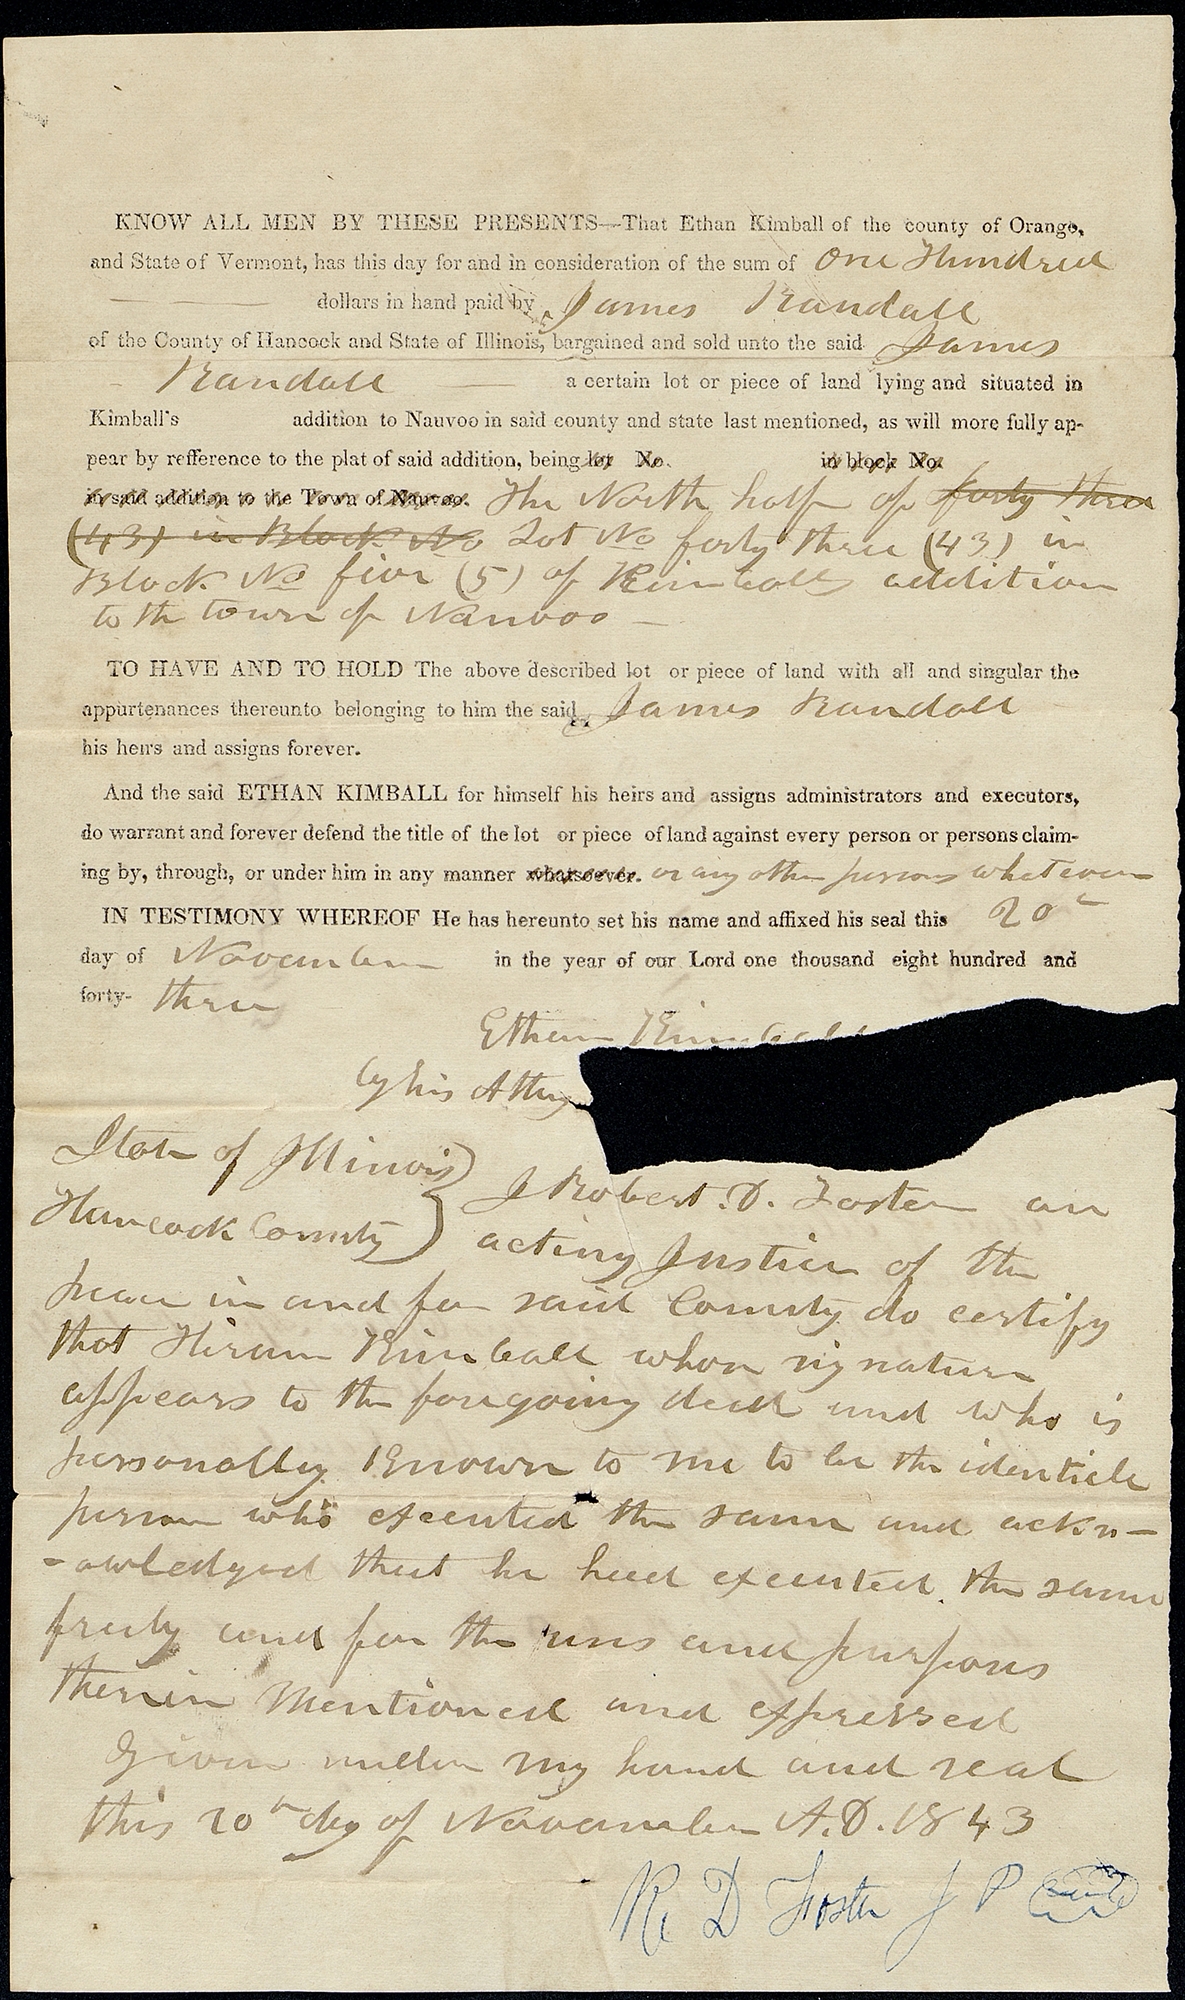 KNOW ALL MEN BY THESE PRESENTS—That Ethan Kimball of the county of Orange,
and State of Vermont, has this day for and in consideration of the sum of One Hundred
dollars in hand paid by James Randall
of the County of Hancock and State of Illinois, bargained and sold unto the said James
Randall a certain lot or piece of land lying and situated in
Kimball's addition to Nauvoo in said county and state last mentioned, as will more fully ap-
pear by refference to the plat of said addition, being lot No. in block No.
in said addition to the Town of Nauvoo. The North half of forty three
(43) in Block No Lot No forty three (43) in
Block No five (5) of Kimballs addition
to the town of Nauvoo —
TO HAVE AND TO HOLD The above described lot or piece of land with all and singular the
appurtenances thereunto belonging to him the said James Randall
his heirs and assigns forever.
And the said ETHAN KIMBALL for himself his heirs and assigns administrators and executors,
do warrant and forever defend the title of the lot or piece of land against every person or persons claim-
ing by, through, or under him in any manner whatsoever. or any other persons whatever
IN TESTIMONY WHEREOF He has hereunto set his name and affixed his seal this 20th
day of November in the year of our Lord one thousand eight hundred and
forty- three
Ethan Kimball
by his Atty
State of Illinois
Hancock County } I Robert. D. Foster an
acting Justice of the
peace in and for said County do certify
that Hiram Kimball whose signature
appears to the foregoing deed and who is
personally Known to me to be the identicle
person who executed the same and ackn-
-owledged that he had executed the same
freely and for the uses and purposes
therein Mentioned and expressed
Given under my hand and seal
this 20th day of November A.D. 1843
R. D Foster J P